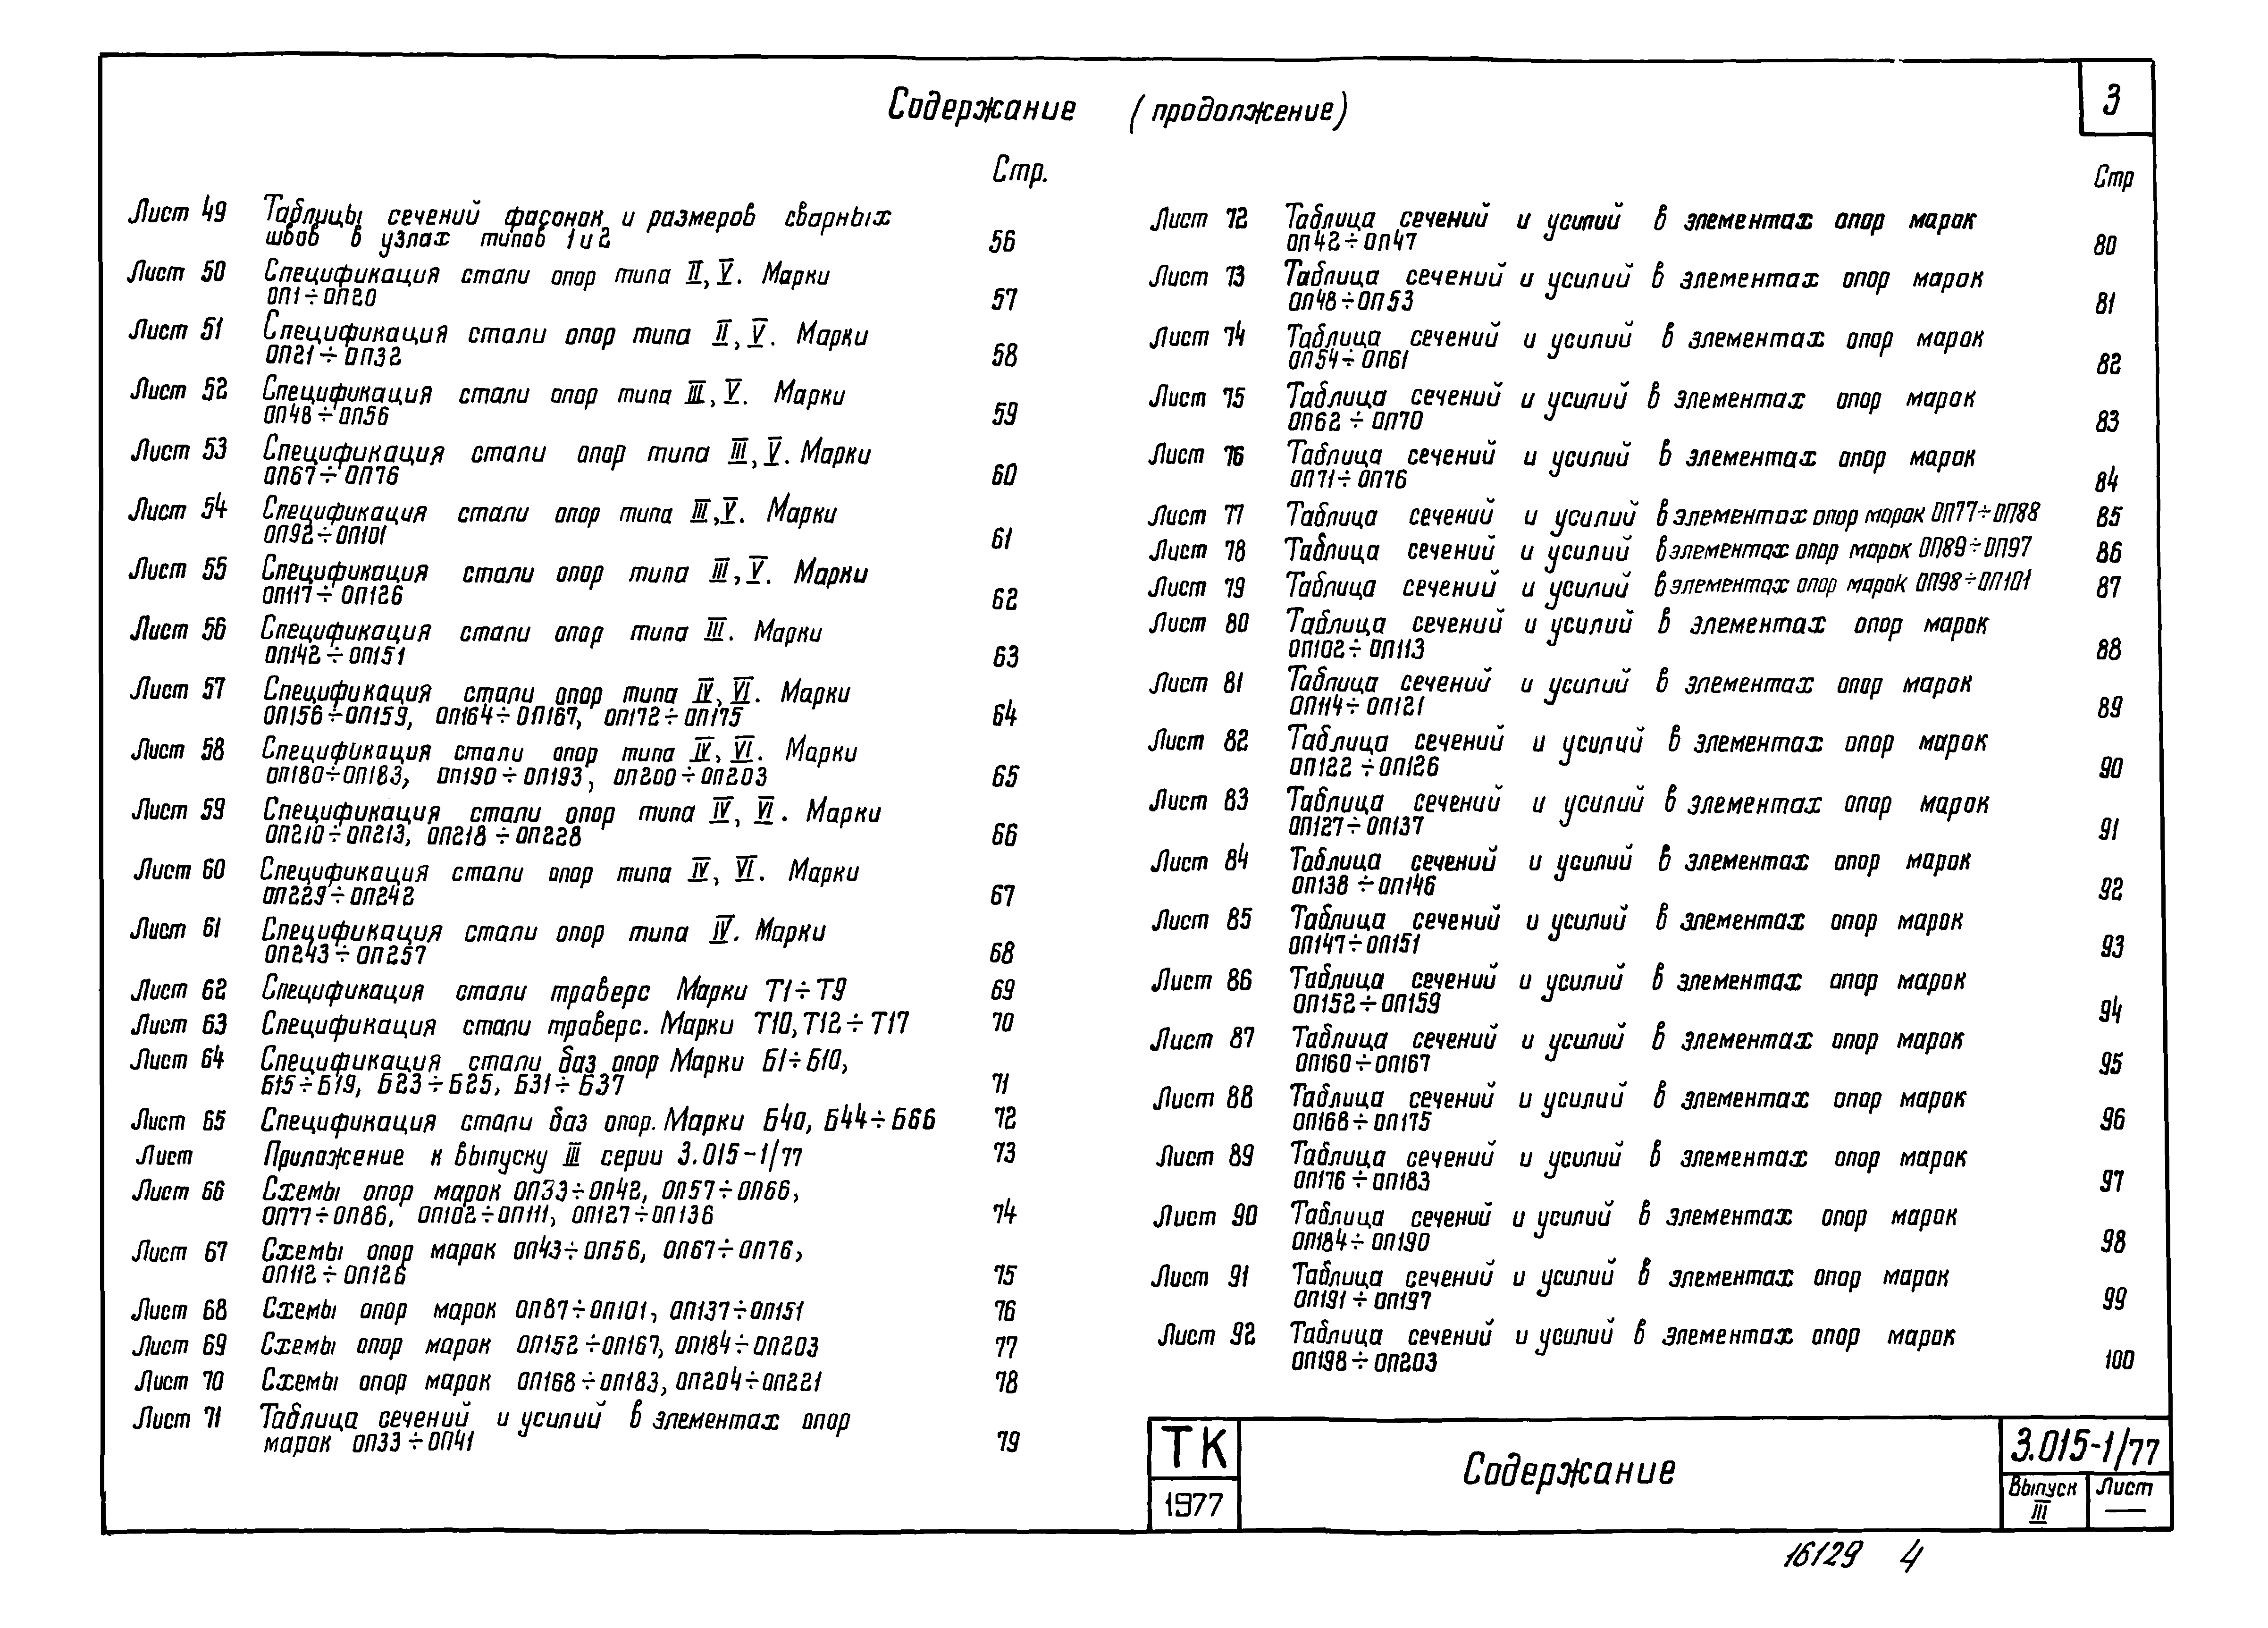 Содержание (продолжение)
3
Стр.
Лист 49 Таблицы сечений фасонок и размеров сварных
швов в узлах типов 1 и 2 56
Лист 50 Спецификация стали опор типа II, V. Марки
ОП1÷ОП20 57
Лист 51 Спецификация стали опор типа II, V. Марки
ОП21÷ОП32 58
Лист 52 Спецификация стали опор типа III, V. Марки
ОП48÷ОП56 59
Лист 53 Спецификация стали опор типа III, V. Марки
ОП67÷ОП76 60
Лист 54 Спецификация стали опор типа III, V. Марки
ОП92÷ОП101 61
Лист 55 Спецификация стали опор типа III, V. Марки
ОП117÷ОП126 62
Лист 56 Спецификация стали опор типа III. Марки
ОП142÷ОП151 63
Лист 57 Спецификация стали опор типа IV, VI. Марки
ОП156÷ОП159, ОП164÷ОП167, ОП172÷ОП175 64
Лист 58 Спецификация стали опор типа IV, VI. Марки
ОП180÷ОП183, ОП190÷ОП193, ОП200÷ОП203 65
Лист 59 Спецификация стали опор типа IV, VI. Марки
ОП210÷ОП213, ОП218÷ОП228 66
Лист 60 Спецификация стали опор типа IV, VI. Марки
ОП229÷ОП242 67
Лист 61 Спецификация стали опор типа IV. Марки
ОП243÷ОП257 68
Лист 62 Спецификация стали траверс Марки Т1÷Т9 69
Лист 63 Спецификация стали траверс. Марки Т10, Т12÷Т17 70
Лист 64 Спецификация стали баз опор Марки Б1÷Б10,
Б15÷Б19, Б23÷Б25, Б31÷Б37 71
Лист 65 Спецификация стали баз опор. Марки Б40, Б44÷Б66 72
Лист Приложение к выпуску III серии 3.015-1/77 73
Лист 66 Схемы опор марок ОП33÷ОП42, ОП57÷ОП66,
ОП77÷ОП86, ОП102÷ОП111, ОП127÷ОП136 74
Лист 67 Схемы опор марок ОП43÷ОП56, ОП67÷ОП76,
ОП112÷ОП126 75
Лист 68 Схемы опор марок ОП87÷ОП101, ОП137÷ОП151 76
Лист 69 Схемы опор марок ОП152÷ОП167, ОП184÷ОП203 77
Лист 70 Схемы опор марок ОП168÷ОП183, ОП204÷ОП221 78
Лист 71 Таблица сечений и усилий в элементах опор
марок ОП33÷ОП41 79
Стр
Лист 72 Таблица сечений и усилий в элементах опор марок
ОП42÷ОП47 80
Лист 73 Таблица сечений и усилий в элементах опор марок
ОП48÷ОП53 81
Лист 74 Таблица сечений и усилий в элементах опор марок
ОП54÷ОП61 82
Лист 75 Таблица сечений и усилий в элементах опор марок
ОП62÷ОП70 83
Лист 76 Таблица сечений и усилий в элементах опор марок
ОП71÷ОП76 84
Лист 77 Таблица сечений и усилий в элементах опор марок ОП77÷ОП88 85
Лист 78 Таблица сечений и усилий в элементах опор марок ОП89÷ОП97 86
Лист 79 Таблица сечений и усилий в элементах опор марок ОП98÷ОП101 87
Лист 80 Таблица сечений и усилий в элементах опор марок
ОП102÷ОП113 88
Лист 81 Таблица сечений и усилий в элементах опор марок
ОП114÷ОП121 89
Лист 82 Таблица сечений и усилий в элементах опор марок
ОП122÷ОП126 90
Лист 83 Таблица сечений и усилий в элементах опор марок
ОП127÷ОП137 91
Лист 84 Таблица сечений и усилий в элементах опор марок
ОП138÷ОП146 92
Лист 85 Таблица сечений и усилий в элементах опор марок
ОП147÷ОП151 93
Лист 86 Таблица сечений и усилий в элементах опор марок
ОП152÷ОП159 94
Лист 87 Таблица сечений и усилий в элементах опор марок
ОП160÷ОП167 95
Лист 88 Таблица сечений и усилий в элементах опор марок
ОП168÷ОП175 96
Лист 89 Таблица сечений и усилий в элементах опор марок
ОП176÷ОП183 97
Лист 90 Таблица сечений и усилий в элементах опор марок
ОП184÷ОП190 98
Лист 91 Таблица сечений и усилий в элементах опор марок
ОП191÷ОП197 99
Лист 92 Таблица сечений и усилий в элементах опор марок
ОП198÷ОП203 100
ТК
1977
Содержание
3.015-1/77
Выпуск Лист
III —
16129 4